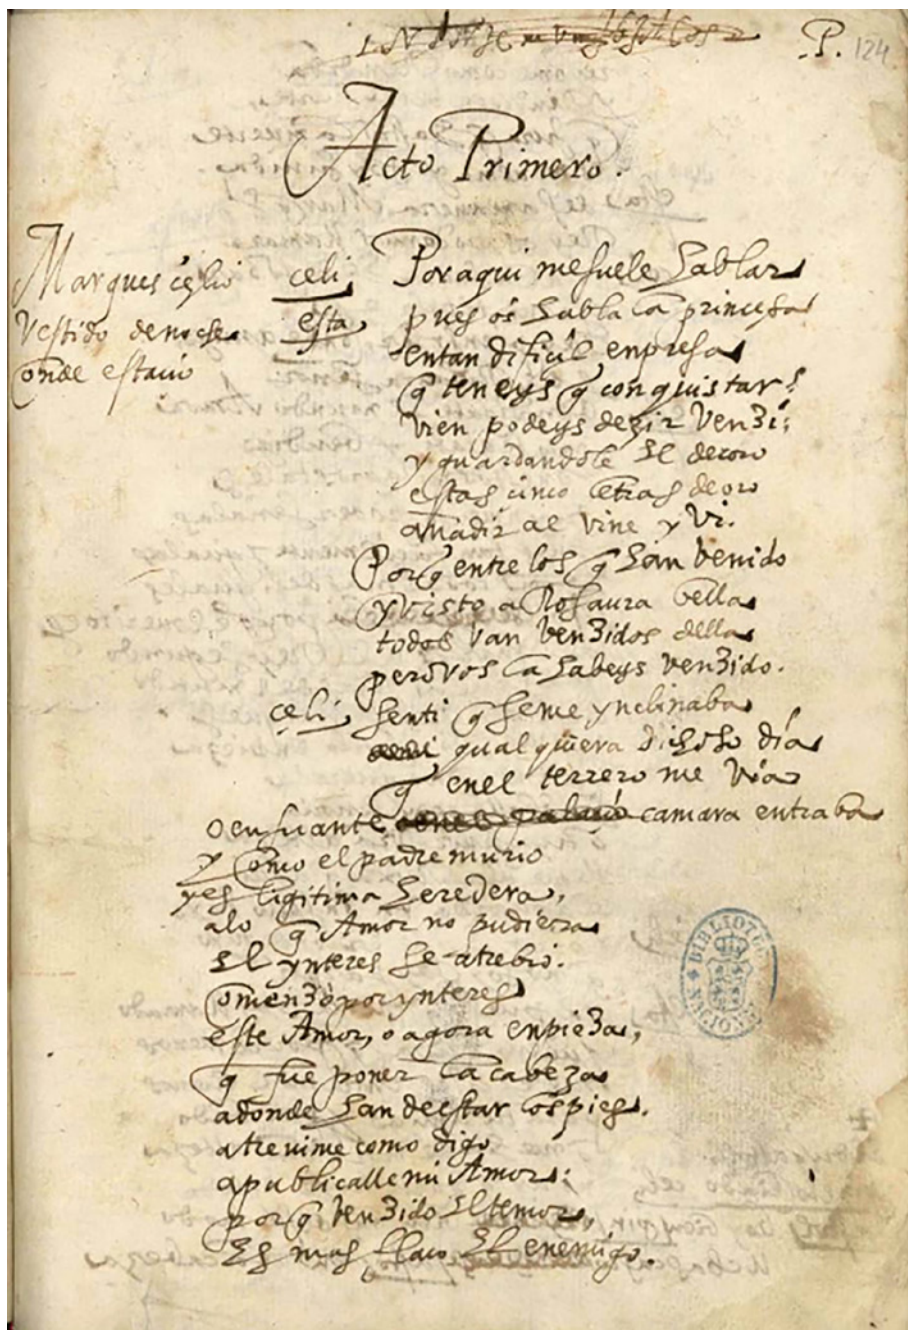 P. 124
Acto Primero.
Marques çelio
Vestido denoche
conde estaçio
celi
Por aqui me suele hablar
esta
pues os habla la princesa
entan dificil enpresa
q̃ teneys q̃ conquistar?
vien podeys dezir Venzi;
y guardandole el decoro
estas cinco letras de oro
añadir al vine y vi.
Porq̃ entre los q̃ han benido
y visto a Rosaura bella
todos van benzidos della
pero vos la habeys venzido.
celi
senti q̃ seme ynclinaba
qualquiera dichoso dia
q̃ enel terrero me via
o en su ante camara entraba
y como el padre murio
y es ligitima heredera,
alo q̃ Amor no pudiera
el ynteres se atrebio.
comenzo por ynteres
este Amor, o agora enpieza,
q̃ fue poner la cabeza
adonde han de estar los pies.
atreuime como digo
apublicalle mi Amor:
porq̃ benzido el temor,
es mas flaco el enemigo.
BIBLIOTECA NACIONAL